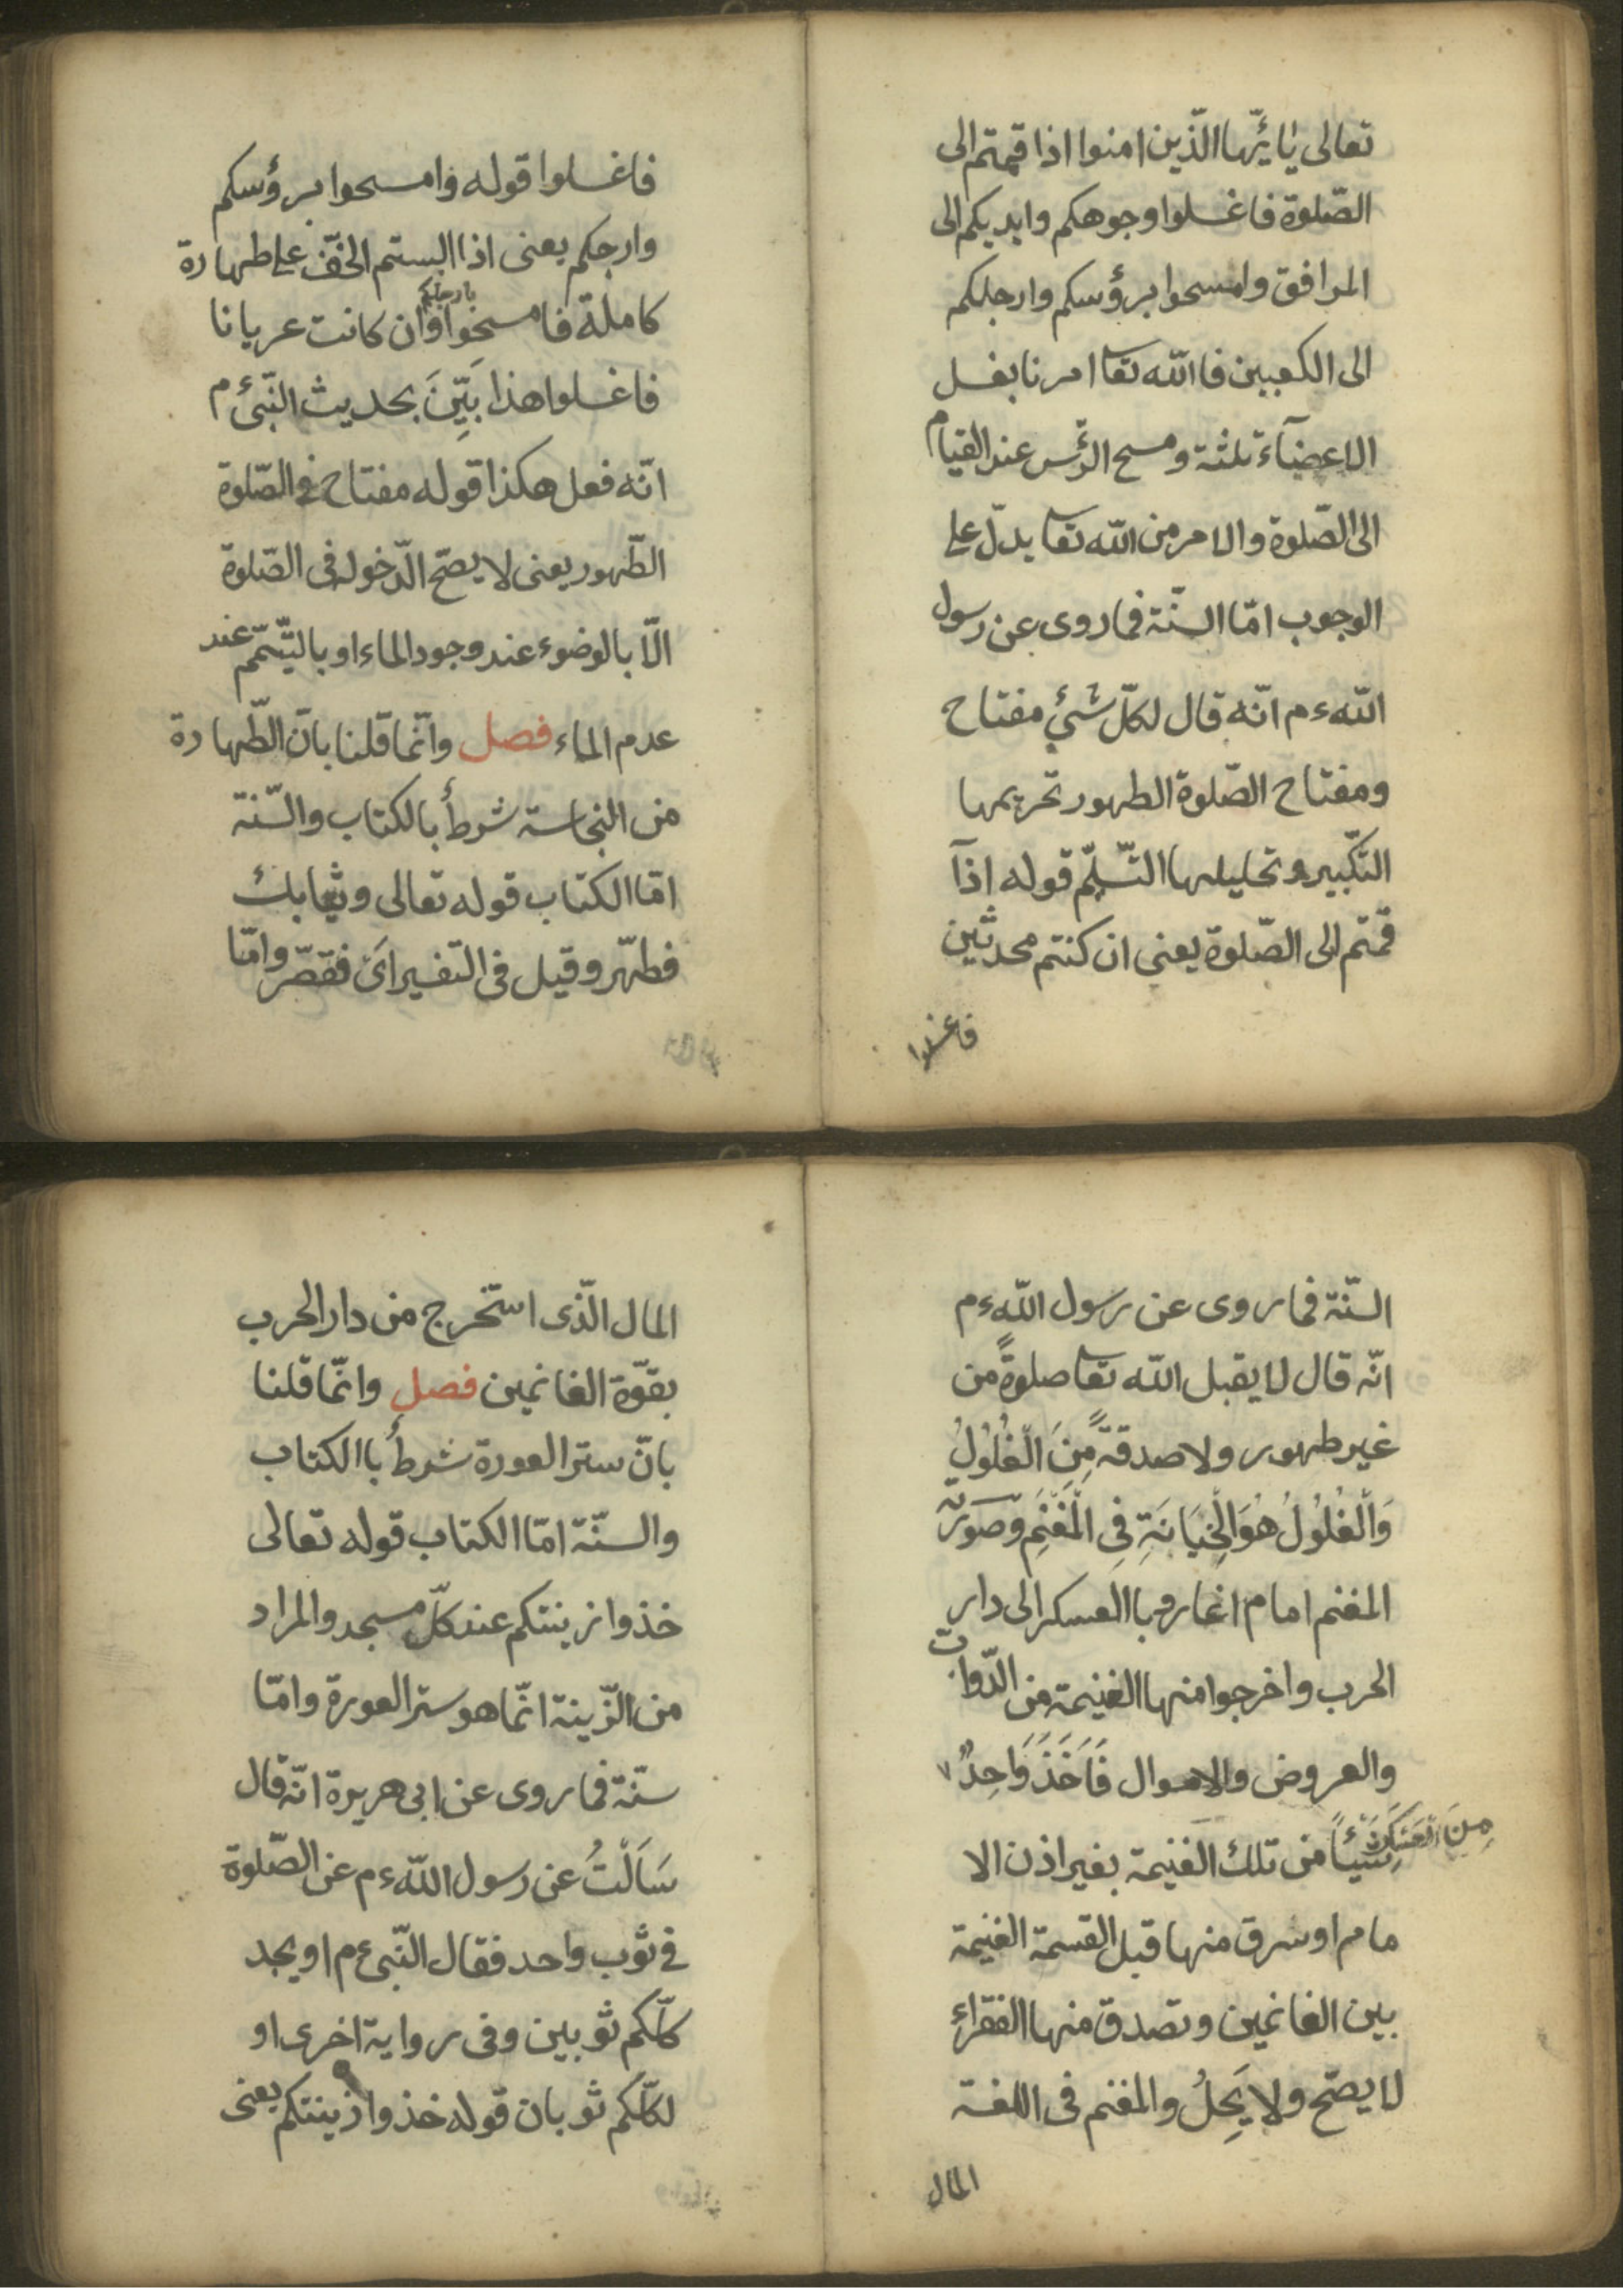 تعالى يٰايّها الّذين امنوا اذا قمتم الى
الصّلوة فاغسلوا وجوهكم وايديكم الى
المرافق وامسحوا برؤسكم وارجلكم
الى الكعبين فا الله تعا امرنا بغسل
الاعضآء ثلثة ومسح الرّئس عند القيام
الى الصّلوة والامر من الله تعا يدلّ على
الوجوب امّا السنّة فما روى عن رسول
الله ءم انّه قال لكلّ شئ مفتاح
ومفتاح الصّلوة الطهور تحريمها
التّكبير وتحليلها التّسليّم قوله اذآ
قمتم الى الصّلوة يعنى ان كنتم محدثين
فاغسلوا
فاغسلوا قوله وامسحوا برؤسكم
وارجكم يعنى اذا البستم الخفّ على طهارة
كاملة فامسحوا بارجلكم وان كانت عريانا
فاغسلوا هذا بَيِّنَ بحديث النّبىء م
انّه فعل هكذا قوله مفتاح فى الصّلوة
الطّهور يعنى لا يصحّ الدّخوله فى الصّلوة
الّا بالوضوء عند وجود الماء او بالتّيمّم عند
عدم الماء فصل وانّما قلنا بانّ الطّهارة
من النجاسة شرطأ بالكتاب والسّنة
امّا الكتاب قوله تعالى وثيابك
فطهّر وقيل فى التفسير اىَ فقصّر وامّا
السنّة فما روى عن رسول الله ءم
انّه قال لا يقبل الله تعا صلوةً من
غير طهور ولا صدقةً مِنَ الْغُلُوْلُ
وَالْغُلُوْلُ هُوَ الْخِيَانَةِ فِى الْمَغْنَمِ وصورته
المغنم امام اغاروا با العسكر الى دار
الحرب واخرجوا منها الغنيمة من الدّوابّ
والعروض والاموال فَاَخَذَ وَاحِدٌ
مِنَ الْعَسْكَرِ شَيْئاً من تلك الغنيمة بغير اذن الا
مام او سرق منها قبل القسمة الغنيمة
بين الغانمين وتصدق منها الفقراء
لا يصحّ ولا يَحِلُ والمغنم فى اللغة
المال
المال الّذى استخرج من دار الحرب
بقوّة الغانمين فصل وانّما قلنا
بانّ ستر العورة شرطأ با الكتاب
والسنّة امّا الكتاب قوله تعالى
خذوا زينتكم عند كلّ مسجد والمراد
من الزّينة انّما هو ستر العورة وامّا
سنّة فما روى عن ابى هريرة انّه قال
سَاَلْتُ عن رسول الله ءم عن الصّلوة
فى ثوب واحد فقال النّبى ءم او يجد
كلّكم ثوبين وفى رواية اخرى او
لكلّكم ثوبان قوله خذوا زينتكم يعنى